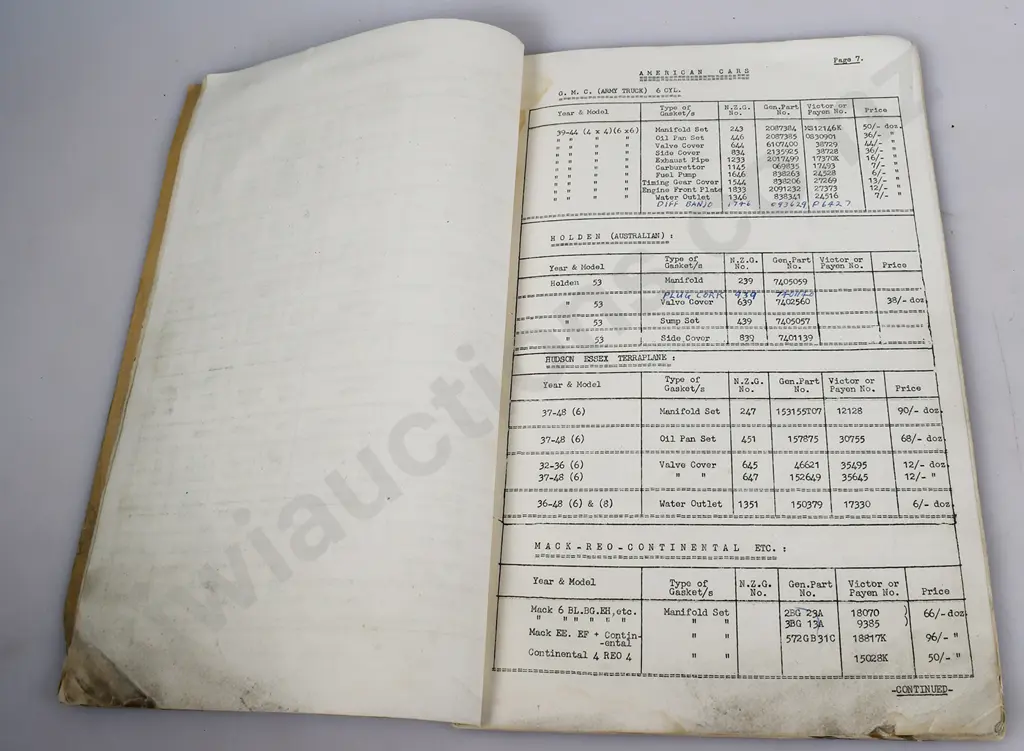 Page 7.
AMERICAN CARS
G. M. C. (ARMY TRUCK) 6 CYL.
Year & Model Type of Gasket/s N.Z.G. No. Gen.Part No. Victor or Payen No. Price
39-44 (4 x 4)(6 x6) Manifold Set 243 2087384 MS12146K 50/- doz.
" " " " Oil Pan Set 446 2087385 OS30901 36/- "
" " " " Valve Cover 644 6107400 38729 44/- "
" " " " Side Cover 834 2135925 38728 36/- "
" " " " Exhaust Pipe 1233 2017499 17370K 16/- "
" " " " Carburettor 1145 069835 17493 7/- "
" " " " Fuel Pump 1646 838263 24528 6/- "
" " " " Timing Gear Cover 1544 838206 27269 13/- "
" " " " Engine Front Plate 1833 2091232 27373 12/- "
" " " " Water Outlet 1346 838341 24516 7/- "
DIFF BANJO 1746
HOLDEN (AUSTRALIAN) :
Year & Model Type of Gasket/s N.Z.G. No. Gen.Part No. Victor or Payen No. Price
Holden 53 Manifold 239 7405059
PLUG CORK 939
" 53 Valve Cover 639 7402560 38/- doz
" 53 Sump Set 439 7405057
" 53 Side Cover 839 7401139
HUDSON ESSEX TERRAPLANE :
Year & Model Type of Gasket/s N.Z.G. No. Gen.Part No. Victor or Payen No. Price
37-48 (6) Manifold Set 247 153155T07 12128 90/- doz.
37-48 (6) Oil Pan Set 451 157875 30755 68/- doz
32-36 (6) Valve Cover 645 46621 35495 12/- doz
37-48 (6) " " 647 152649 35645 12/- "
36-48 (6) & (8) Water Outlet 1351 150379 17330 6/- doz
MACK-REO-CONTINENTAL ETC. :
Year & Model Type of Gasket/s N.Z.G. No. Gen.Part No. Victor or Payen No. Price
Mack 6 BL.BG.EH,etc. Manifold Set 2BG 23A 18070 ) 66/- doz
" " " " " " " 3BG 13A 9385 )
Mack EE. EF + Contin- " " 572GB31C 18817K 96/- "
-ental
Continental 4 REO 4 " " 15028K 50/- "
-CONTINUED-